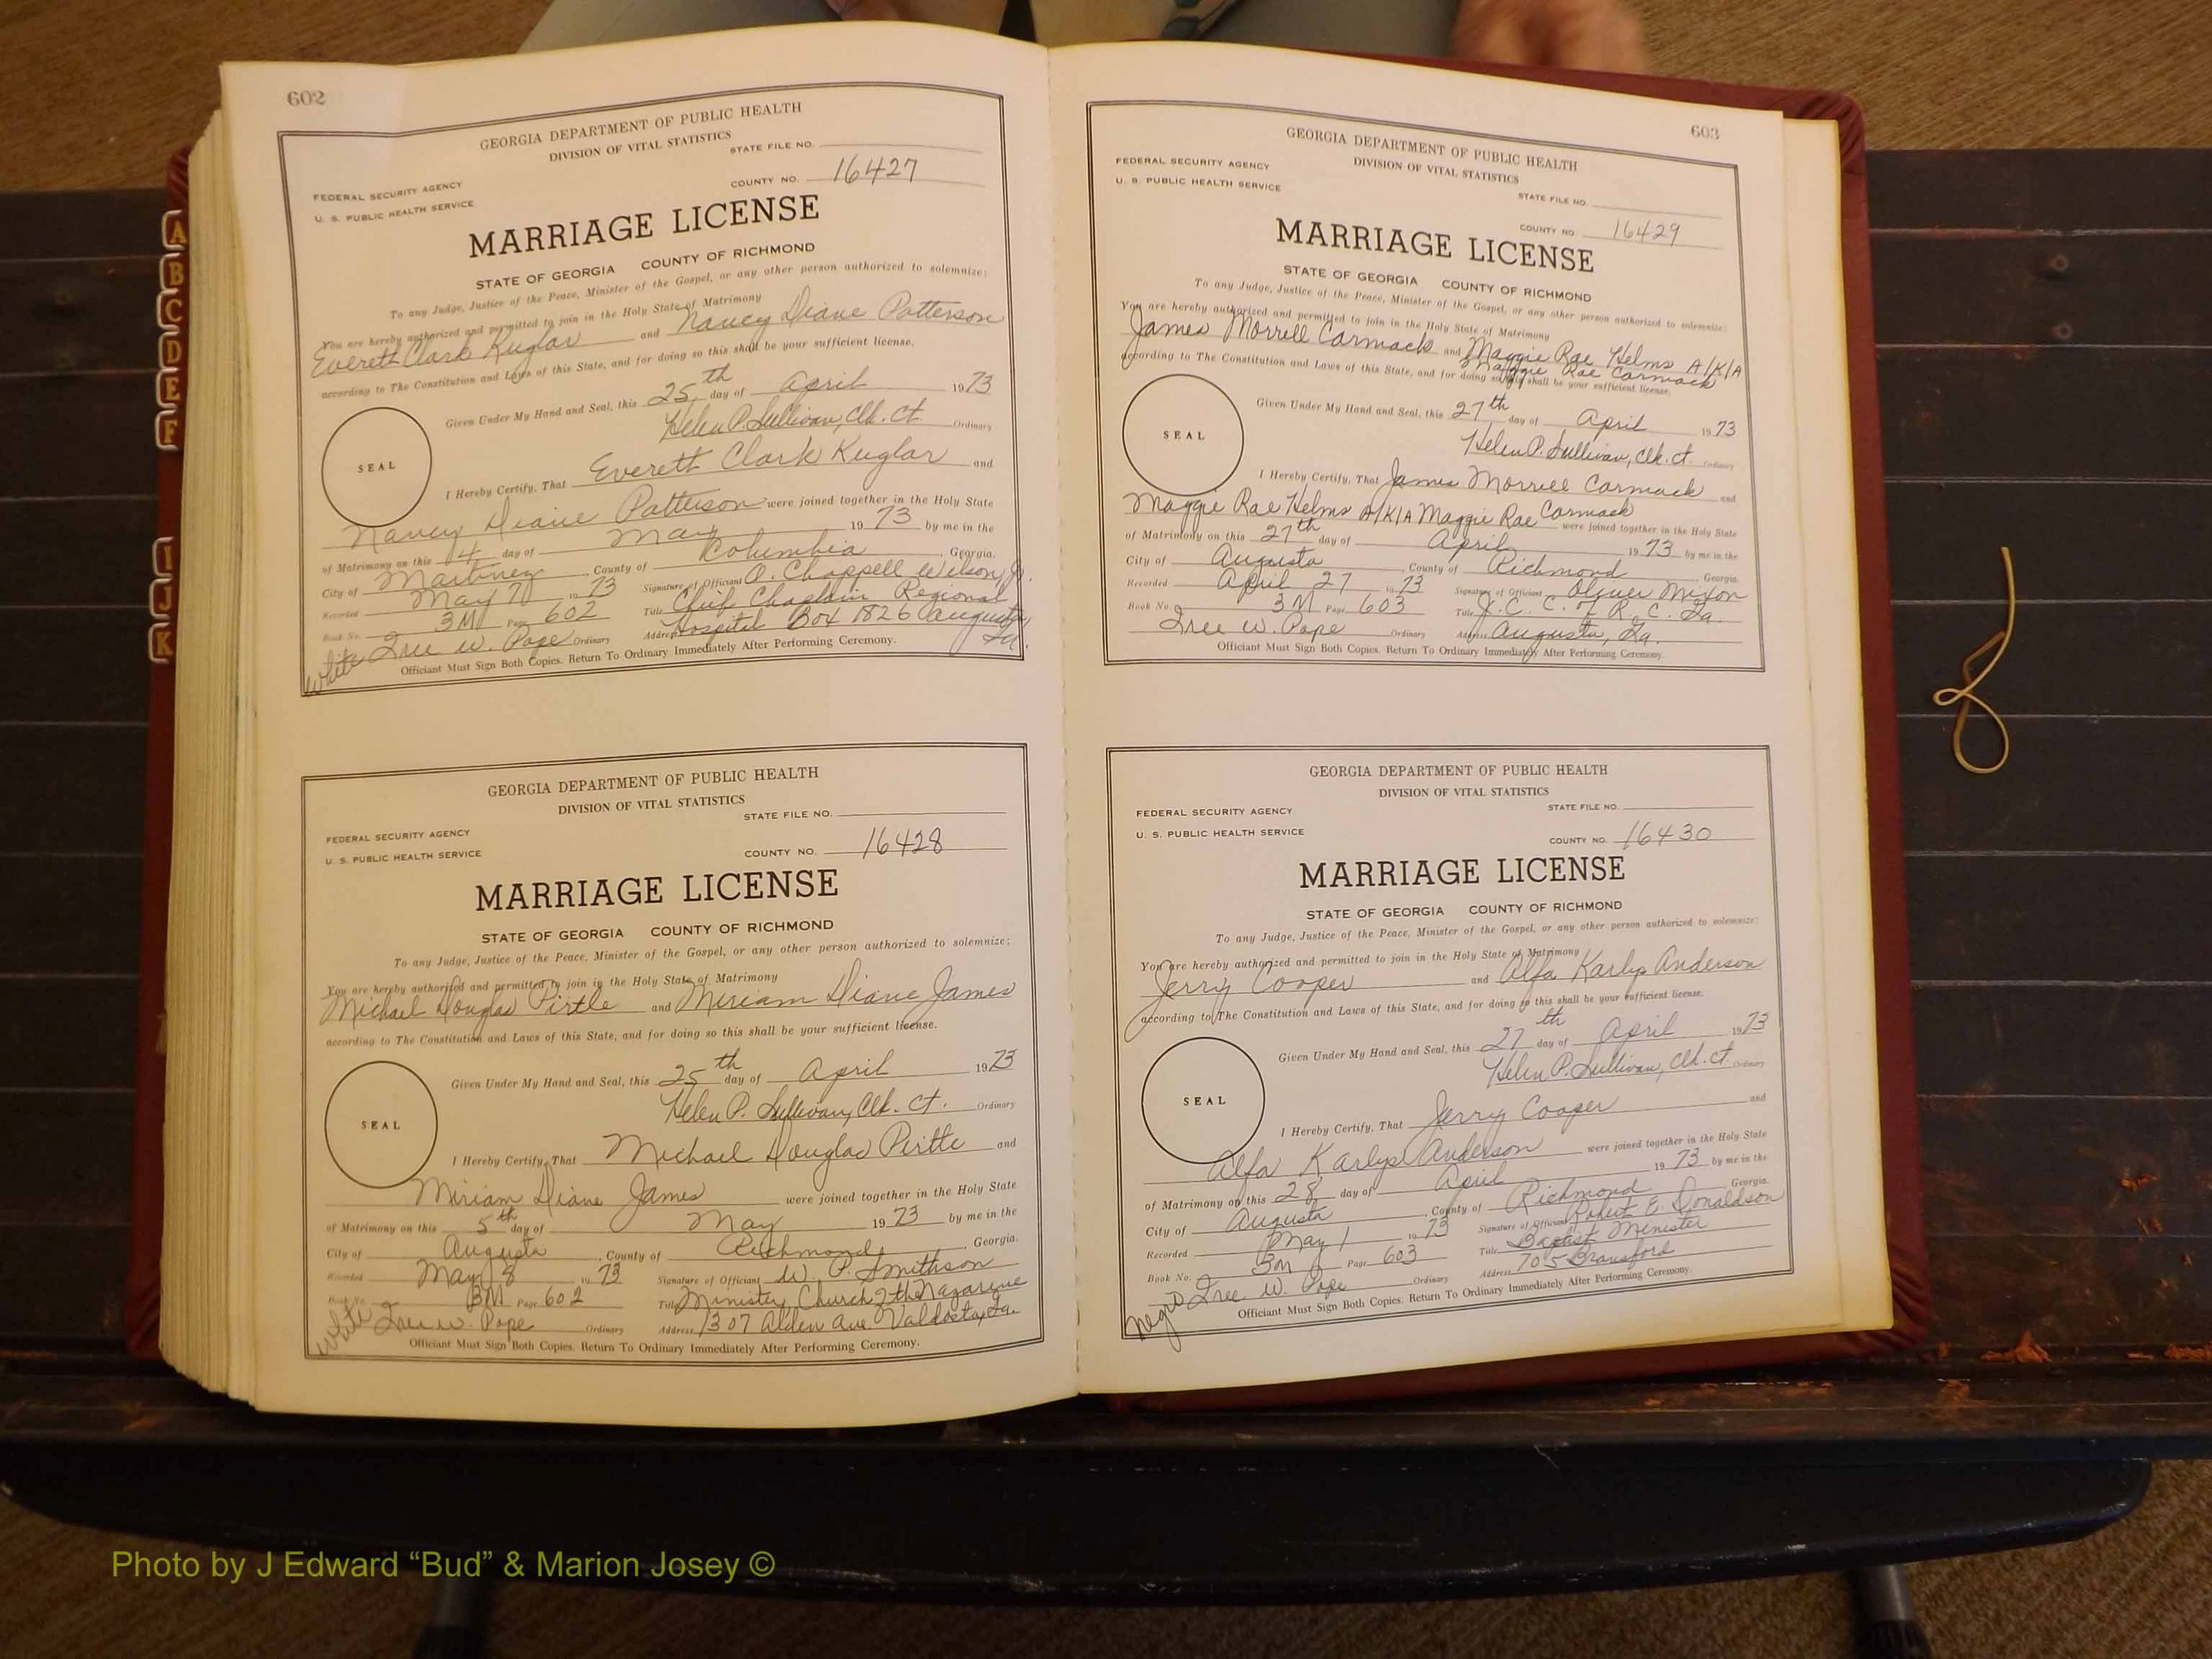 A
B
C
D
E
F
I
J
K
602
GEORGIA DEPARTMENT OF PUBLIC HEALTH
DIVISION OF VITAL STATISTICS
STATE FILE NO.
FEDERAL SECURITY AGENCY
U. S. PUBLIC HEALTH SERVICE
COUNTY NO. 16427
MARRIAGE LICENSE
STATE OF GEORGIA COUNTY OF RICHMOND
To any Judge, Justice of the Peace, Minister of the Gospel, or any other person authorized to solemnize:
You are hereby authorized and permitted to join in the Holy State of Matrimony
Evereth Clark Kuglar and Nancy Diane Patterson
according to The Constitution and Laws of this State, and for doing so this shall be your sufficient license.
Given Under My Hand and Seal, this 25th day of April 1973
Helen P. Sullivan, Clk. Ct. Ordinary
SEAL
I Hereby Certify, That Everett Clark Kuglar and
Nancy Diane Patterson were joined together in the Holy State
of Matrimony on this 4 day of May 1973 by me in the
City of Martinez, County of Columbia, Georgia.
Recorded May 7 1973 Signature of Officiant O. Chappell Wilson Jr.
Book No. 3M Page 602 Title Chief Chaplain Regional
Iree W. Pope Ordinary Address Hospital Box 1826 Augusta
Ga.
White
Officiant Must Sign Both Copies. Return To Ordinary Immediately After Performing Ceremony.
GEORGIA DEPARTMENT OF PUBLIC HEALTH
DIVISION OF VITAL STATISTICS
STATE FILE NO.
FEDERAL SECURITY AGENCY
U. S. PUBLIC HEALTH SERVICE
COUNTY NO. 16428
MARRIAGE LICENSE
STATE OF GEORGIA COUNTY OF RICHMOND
To any Judge, Justice of the Peace, Minister of the Gospel, or any other person authorized to solemnize:
You are hereby authorized and permitted to join in the Holy State of Matrimony
Michael Douglas Pirtle and Miriam Diane James
according to The Constitution and Laws of this State, and for doing so this shall be your sufficient license.
Given Under My Hand and Seal, this 25th day of April 1973
Helen P. Sullivan, Clk. Ct. Ordinary
SEAL
I Hereby Certify, That Michael Douglas Pirtle and
Miriam Diane James were joined together in the Holy State
of Matrimony on this 5th day of May 1973 by me in the
City of Augusta, County of Richmond, Georgia.
Recorded May 8 1973 Signature of Officiant W. P. Smithson
Book No. 3M Page 602 Title Minister, Church of the Nazarene
Iree W. Pope Ordinary Address 1307 Alden Ave. Valdosta, Ga.
White
Officiant Must Sign Both Copies. Return To Ordinary Immediately After Performing Ceremony.
603
GEORGIA DEPARTMENT OF PUBLIC HEALTH
DIVISION OF VITAL STATISTICS
FEDERAL SECURITY AGENCY
U. S. PUBLIC HEALTH SERVICE
STATE FILE NO.
COUNTY NO. 16429
MARRIAGE LICENSE
STATE OF GEORGIA COUNTY OF RICHMOND
To any Judge, Justice of the Peace, Minister of the Gospel, or any other person authorized to solemnize:
You are hereby authorized and permitted to join in the Holy State of Matrimony
James Morrell Carmack and Maggie Rae Helms A/K/A
Maggie Rae Carmack
according to The Constitution and Laws of this State, and for doing so this shall be your sufficient license.
Given Under My Hand and Seal, this 27th day of April 1973
Helen P. Sullivan, Clk. Ct. Ordinary
SEAL
I Hereby Certify, That James Morrell Carmack and
Maggie Rae Helms A/K/A Maggie Rae Carmack were joined together in the Holy State
of Matrimony on this 27th day of April 1973 by me in the
City of Augusta, County of Richmond Georgia.
Recorded April 27 1973 Signature of Officiant Oliver Mixon
Book No. 3M Page 603 Title J. C. C. of R. C. Ga.
Iree W. Pope Ordinary Address Augusta, Ga.
Officiant Must Sign Both Copies. Return To Ordinary Immediately After Performing Ceremony.
GEORGIA DEPARTMENT OF PUBLIC HEALTH
DIVISION OF VITAL STATISTICS
FEDERAL SECURITY AGENCY
STATE FILE NO.
U. S. PUBLIC HEALTH SERVICE
COUNTY NO. 16430
MARRIAGE LICENSE
STATE OF GEORGIA COUNTY OF RICHMOND
To any Judge, Justice of the Peace, Minister of the Gospel, or any other person authorized to solemnize:
You are hereby authorized and permitted to join in the Holy State of Matrimony
Jerry Cooper and Alfa Karlys Anderson
according to The Constitution and Laws of this State, and for doing so this shall be your sufficient license.
Given Under My Hand and Seal, this 27th day of April 1973
Helen P. Sullivan, Clk. Ct. Ordinary
SEAL
I Hereby Certify, That Jerry Cooper and
Alfa Karlys Anderson were joined together in the Holy State
of Matrimony on this 28 day of April 1973 by me in the
City of Augusta, County of Richmond Georgia.
Recorded May 1 1973 Signature of Officiant Robert E. Donaldson
Book No. 3M Page 603 Title Baptist Minister
Iree W. Pope Ordinary Address 705 Bransford
Negro
Officiant Must Sign Both Copies. Return To Ordinary Immediately After Performing Ceremony.
Photo by J Edward “Bud” & Marion Josey ©